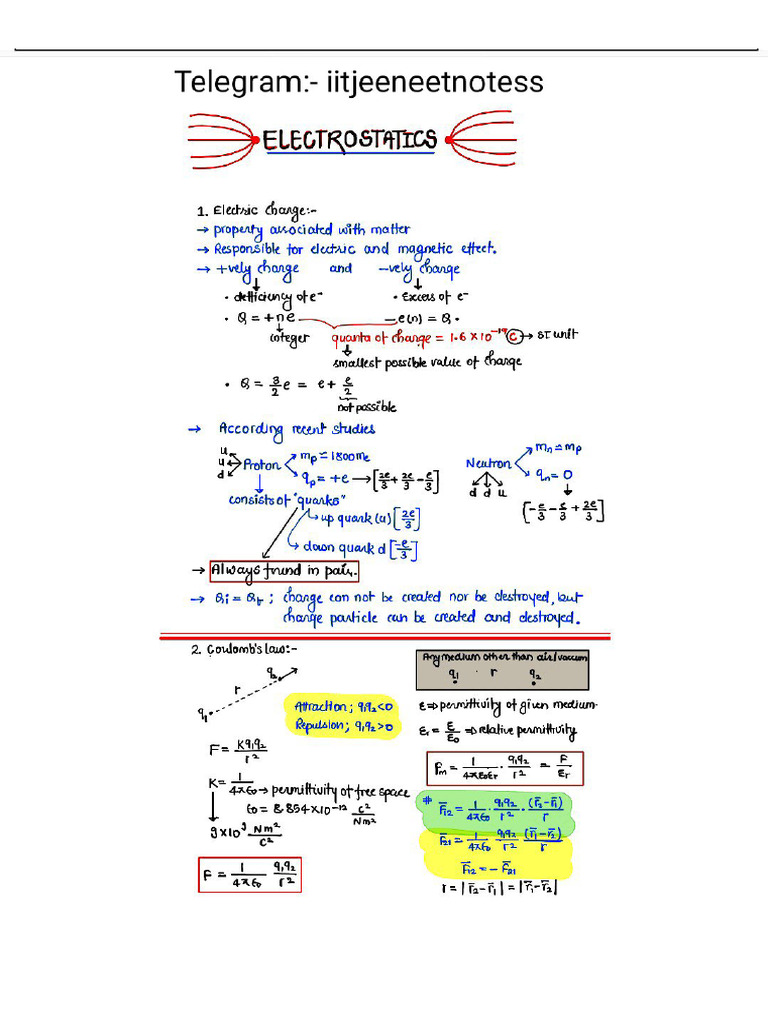 Telegram:- iitjeeneetnotess
ELECTROSTATICS
1. Electric Charge:-
→ property associated with matter
→ Responsible for electric and magnetic effect.
→ +vely charge and -vely charge
• defficiency of e⁻ • Excess of e⁻
• Q = +ne -e(n) = Q.
integer quanta of charge = 1.6 × 10⁻¹⁹ C → SI unit
smallest possible value of charge
• Q = 3/2 e = e + e/2
not possible
→ According recent studies
u u d ← Proton
mp ≃ 1800me
qp = +e → [2e/3 + 2e/3 - e/3]
consists of "quarks"
up quark (u) [2e/3]
down quark d [-e/3]
Neutron
mn ≃ mp
qn = 0
d d u
[-e/3 - e/3 + 2e/3]
→ Always found in pair.
→ Qi = Qf ; charge can not be created nor be destroyed, but
charge particle can be created and destroyed.
2. Coulomb's law:-
q₁ r q₂
Attraction ; q₁q₂<0
Repulsion ; q₁q₂>0
F = Kq₁q₂/r²
K = 1/4πε₀ → permittivity of free space
ε₀ = 8.854×10⁻¹² C²/Nm²
9×10⁹ Nm²/C²
F = 1/4πε₀ q₁q₂/r²
Any medium other than air/vaccum
q₁ r q₂
ε ⇒ permittivity of given medium.
εr = ε/ε₀ ⇒ relative permittivity
Fm = 1/4πε₀εr · q₁q₂/r² = F/εr
# F̄₁₂ = 1/4πε₀ · q₁q₂/r² · (r̄₂-r̄₁)/r
F̄₂₁ = 1/4πε₀ q₁q₂/r² (r̄₁-r̄₂)/r
F̄₁₂ = - F̄₂₁
r = |r̄₂-r̄₁| = |r̄₁-r̄₂|